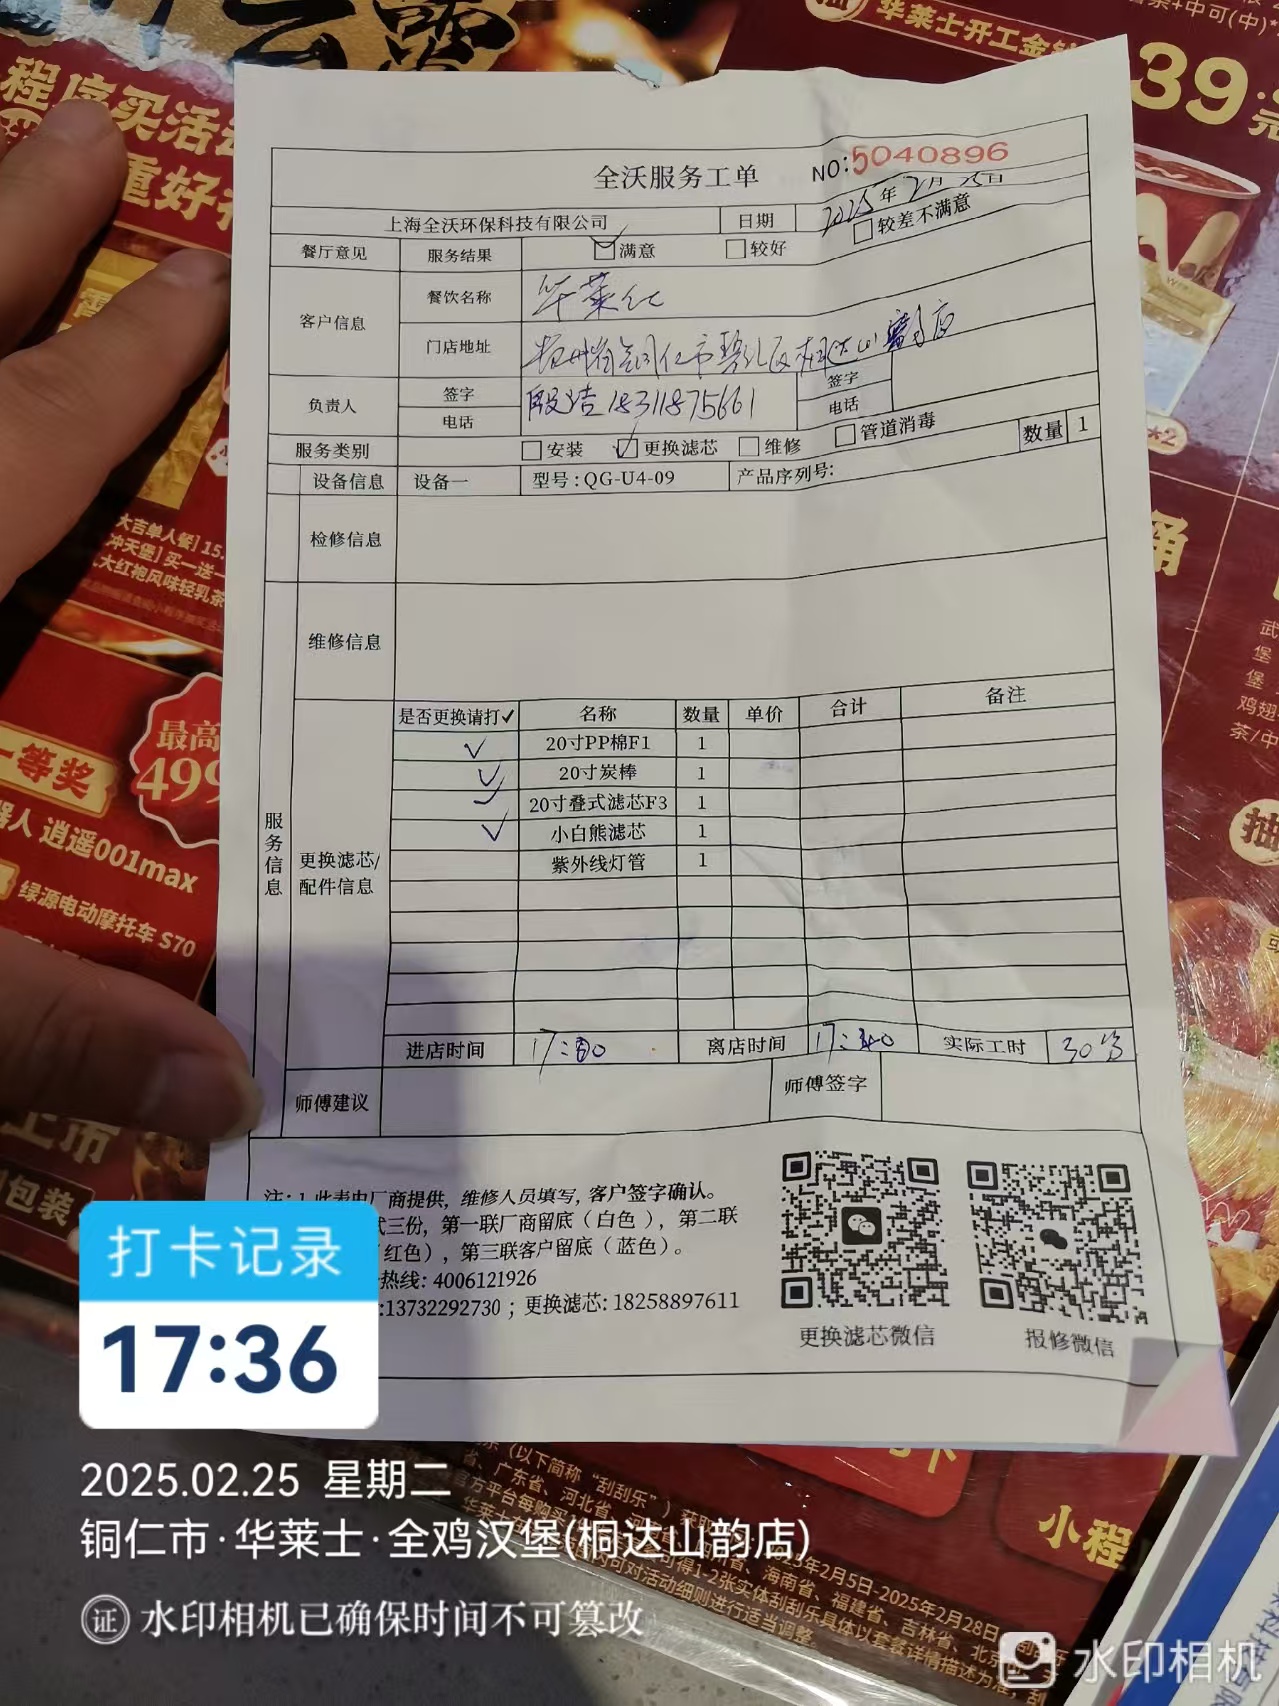 华莱士开工金
39.
元
程序买活
重好
全沃服务工单 NO:5040896
上海全沃环保科技有限公司 日期 2025年2月25日
餐厅意见 服务结果 满意 较好 较差不满意
客户信息 餐饮名称 华莱士
门店地址
负责人 签字 签字
电话 18311875661 电话
服务类别 安装 更换滤芯 维修 管道消毒 数量 1
设备信息 设备一 型号:QG-U4-09 产品序列号:
检修信息
维修信息
服务信息
更换滤芯/配件信息
是否更换请打✓ 名称 数量 单价 合计 备注
✓ 20寸PP棉F1 1
✓ 20寸炭棒 1
✓ 20寸叠式滤芯F3 1
✓ 小白熊滤芯 1
紫外线灯管 1
进店时间 离店时间 17:40 实际工时
师傅建议 师傅签字
商提供, 维修人员填写, 客户签字确认。
式三份, 第一联厂商留底(白色), 第二联
红色), 第三联客户留底(蓝色)。
热线: 4006121926
:13732292730 ; 更换滤芯: 18258897611
更换滤芯微信 报修微信
大吉单人餐] 15.
冲天堡] 买一送一
大红袍风味轻乳茶
一等奖
最高
499
逍遥001max
绿源电动摩托车 S70
上市
包装
小程
打卡记录
17:36
2025.02.25 星期二
铜仁市·华莱士·全鸡汉堡(桐达山韵店)
证 水印相机已确保时间不可篡改
水印相机